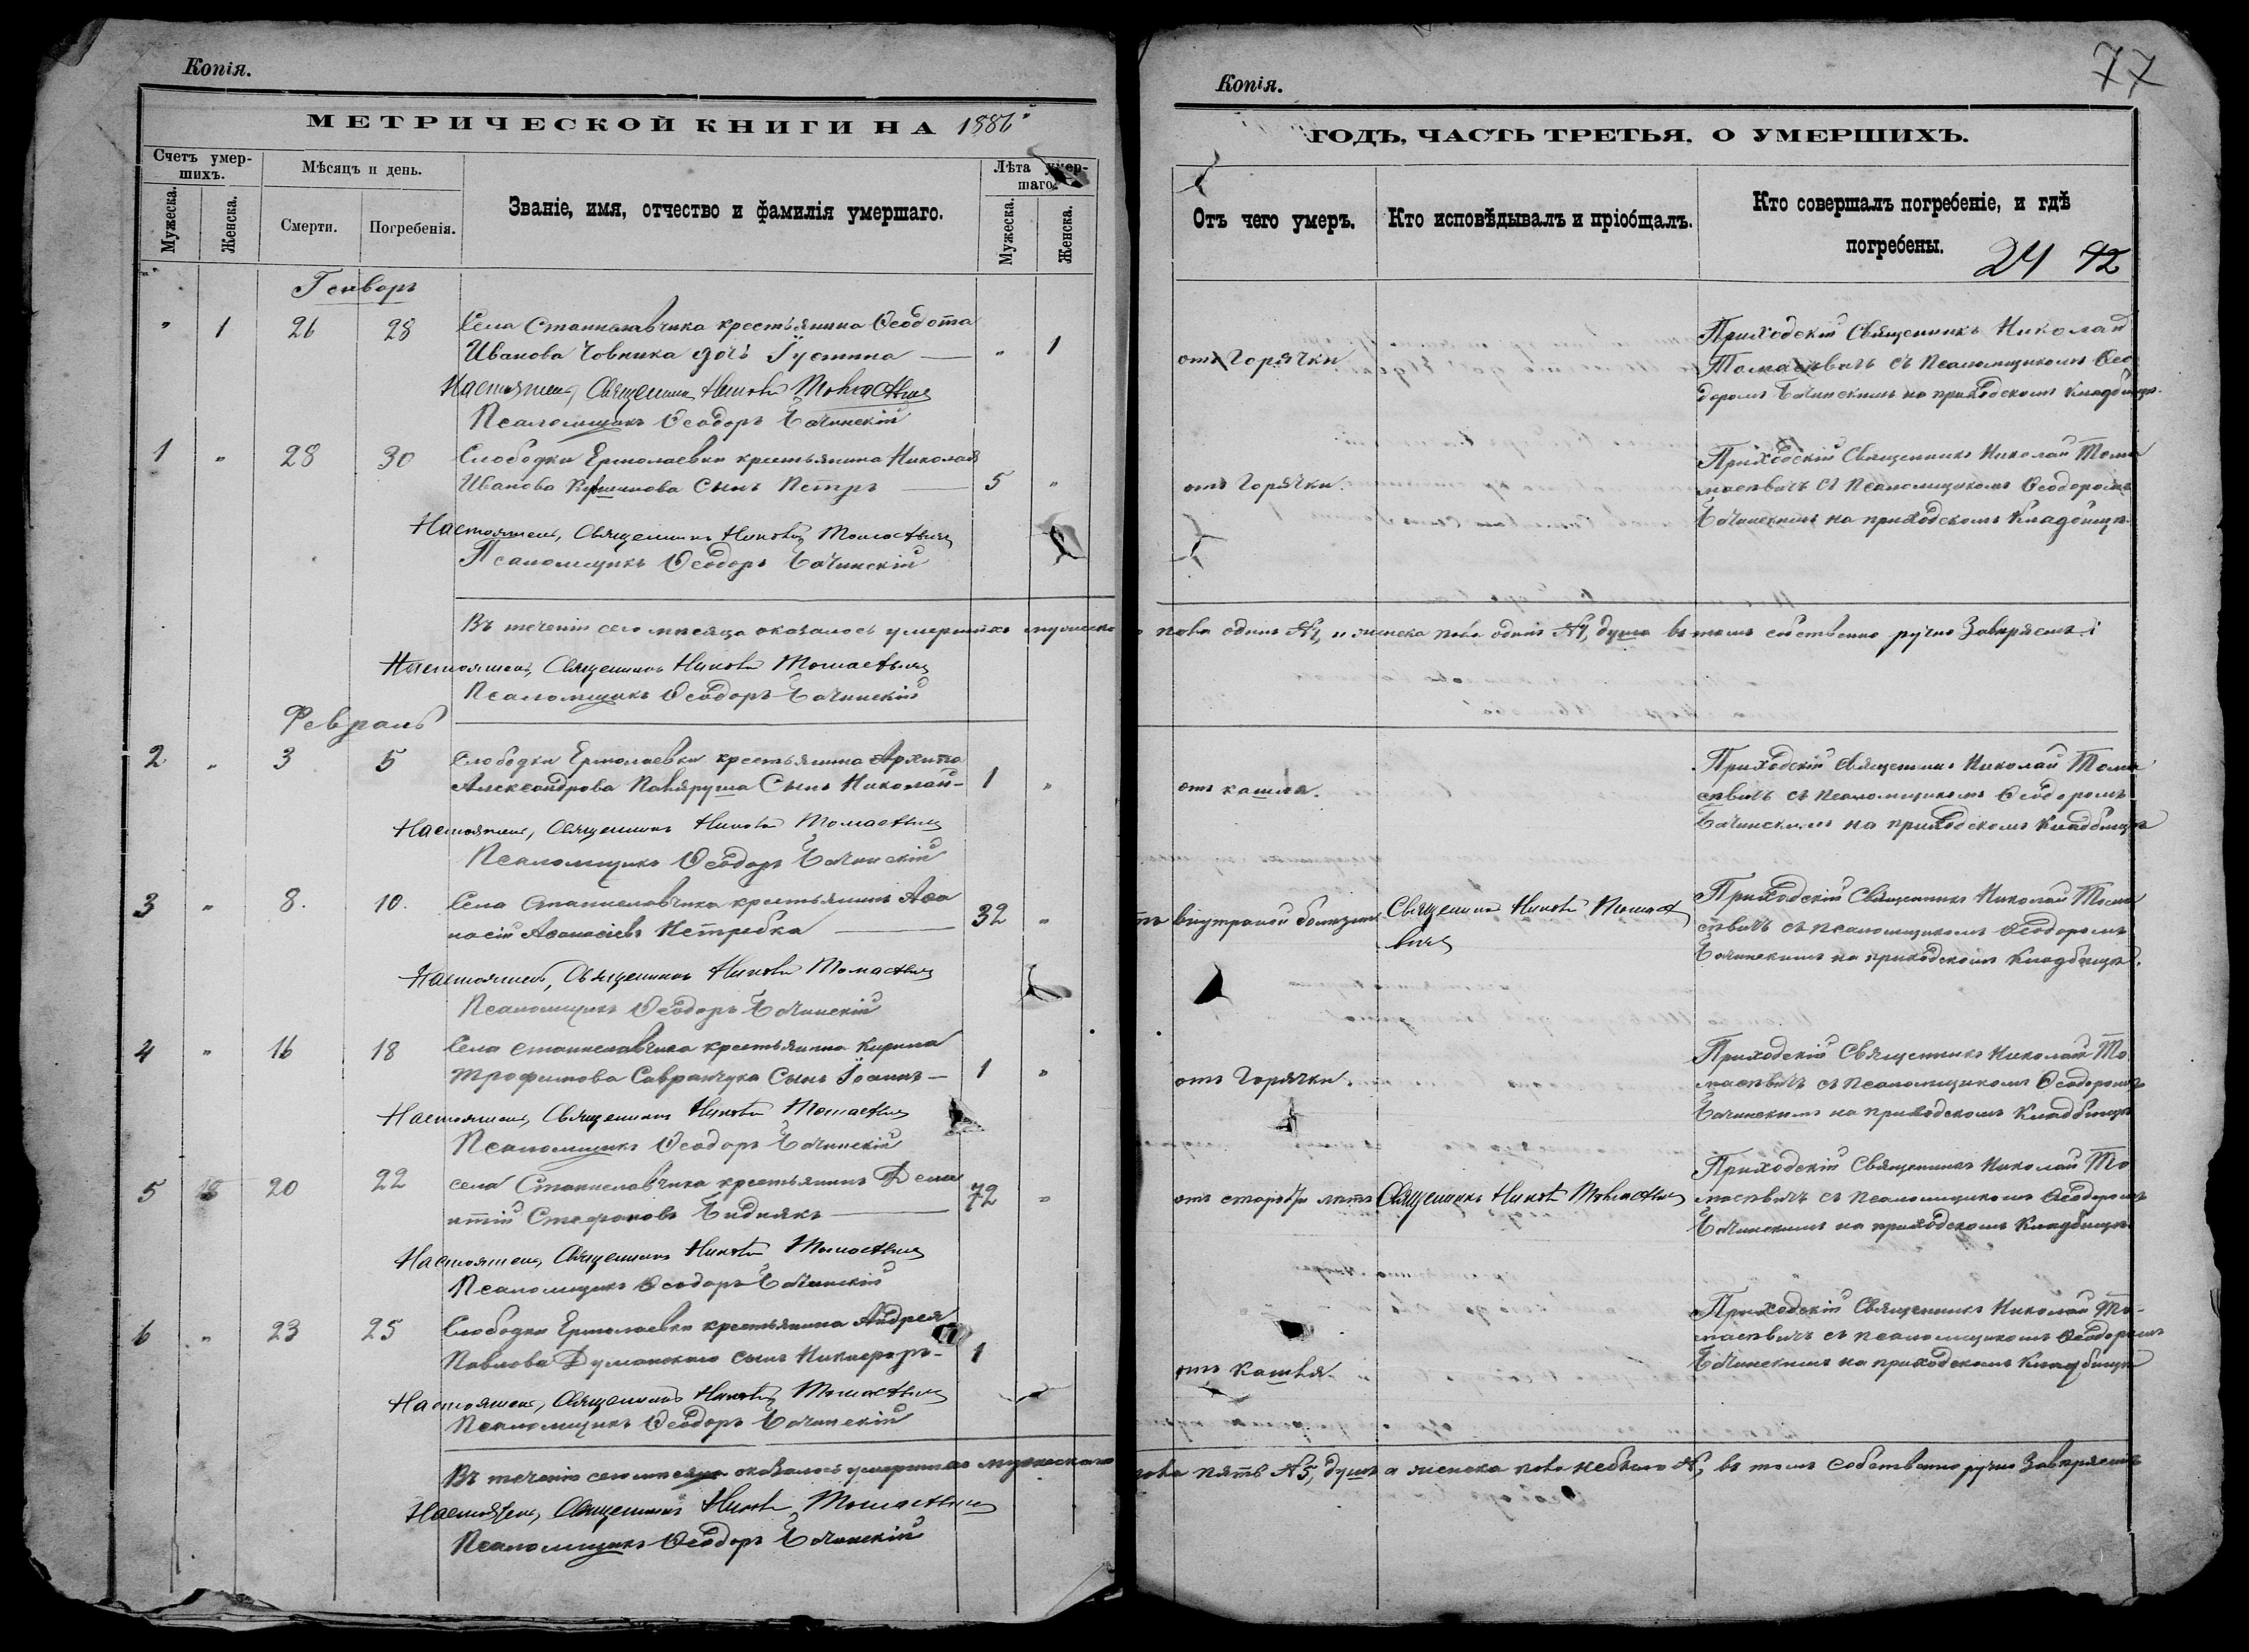 Копія.
МЕТРИЧЕСКОЙ КНИГИ НА 1886
Счетъ умер-
шихъ.
Мѣсяцъ и день.
Званіе, имя, отчество и фамилія умершаго.
Лѣта умер-
шаго.
Мужеска.
Женска.
Смерти.
Погребенія.
Мужеска.
Женска.
Генворь
" 1 26 28 Села Станиславчика крестьянина Ѳеодота
Иванова Човника дочь Іустина — " 1
Настоятель, Священникъ Николай Томасевичъ
Псаломщикъ Ѳеодоръ Бачинскій
1 " 28 30 Слободки Ермолаевки крестьянина Николая
Иванова сынъ Петръ — 5 "
Настоятель, Священникъ Николай Томасевичъ
Псаломщикъ Ѳеодоръ Бачинскій
Въ теченіи сего мѣсяца оказалось умершихъ мужеско
Настоятель, Священникъ Николай Томасевичъ
Псаломщикъ Ѳеодоръ Бачинскій
Февраль
2 " 3 5 Слободки Ермолаевки крестьянина Архипа
Александрова Сынъ Николай - 1 "
Настоятель, Священникъ Николай Томасевичъ
Псаломщикъ Ѳеодоръ Бачинскій
3 " 8. 10. Села Станиславчика крестьянинъ Аѳа
насій Аѳанасіевъ Нетребка — 32 "
Настоятель, Священникъ Николай Томасевичъ
Псаломщикъ Ѳеодоръ Бачинскій
4 " 16 18 Села Станиславчика крестьянина Кирила
Трофимова Савранчука Сынъ Іоаннъ — 1 "
Настоятель, Священникъ Николай Томасевичъ
Псаломщикъ Ѳеодоръ Бачинскій
5 20 22 села Станиславчика крестьянинъ Деме
нтій Стефановъ Бидникъ — 72 "
Настоятель, Священникъ Николай Томасевичъ
Псаломщикъ Ѳеодоръ Бачинскій
6 " 23 25 Слободки Ермолаевки крестьянина Андрея
Павлова Думанскаго сынъ Никифоръ - 1
Настоятель, Священникъ Николай Томасевичъ
Псаломщикъ Ѳеодоръ Бачинскій
Въ теченіи сего мѣсяца оказалось умершихъ мужескаго
Настоятель, Священникъ Николай Томасевичъ
Псаломщикъ Ѳеодоръ Бачинскій
77
Копія.
ГОДЪ, ЧАСТЬ ТРЕТЬЯ, О УМЕРШИХЪ.
Отъ чего умеръ.
Кто исповѣдывалъ и пріобщалъ.
Кто совершалъ погребеніе, и гдѣ
погребены.
24 92
отъ Горячки
Приходскій Священникъ Николай
Томасевичъ съ Псаломщикомъ Ѳео
доромъ Бачинскимъ на приходскомъ Кладбищѣ.
отъ Горячки
Приходскій Священникъ Николай Тома
масевичъ съ Псаломщикомъ Ѳеодоромъ
Бачинскимъ на приходскомъ Кладбищѣ
пола одинъ №1, и женска пола одинъ №1, душа въ томъ собственно ручно Завѣряемъ:
отъ кашля.
Приходскій Священникъ Николай Тома
севичъ съ Псаломщикомъ Ѳеодоромъ
Бачинскимъ на приходскомъ Кладбищѣ
отъ внутреной болезни
Священникъ Николай Томасе
вичъ
Приходскій Священникъ Николай Тома
севичъ съ Псаломщикомъ Ѳеодоромъ
Бачинскимъ на приходскомъ Кладбищѣ.
отъ Горячки.
Приходскій Священникъ Николай То
масевичъ съ Псаломщикомъ Ѳеодоромъ
Бачинскимъ на приходскомъ Кладбищѣ
отъ старости лѣтъ
Священникъ Николай Томасевичъ
Приходскій Священникъ Николай То
масевичъ съ Псаломщикомъ Ѳеодоромъ
Бачинскимъ на приходскомъ Кладбищѣ
отъ Кашля.
Приходскій Священникъ Николай То-
масевичъ съ псаломщикомъ Ѳеодоромъ
Бачинскимъ на приходскомъ Кладбищѣ
пола пять №5, душъ а женска пола небыло №, въ томъ Собственно ручно Завѣряемъ